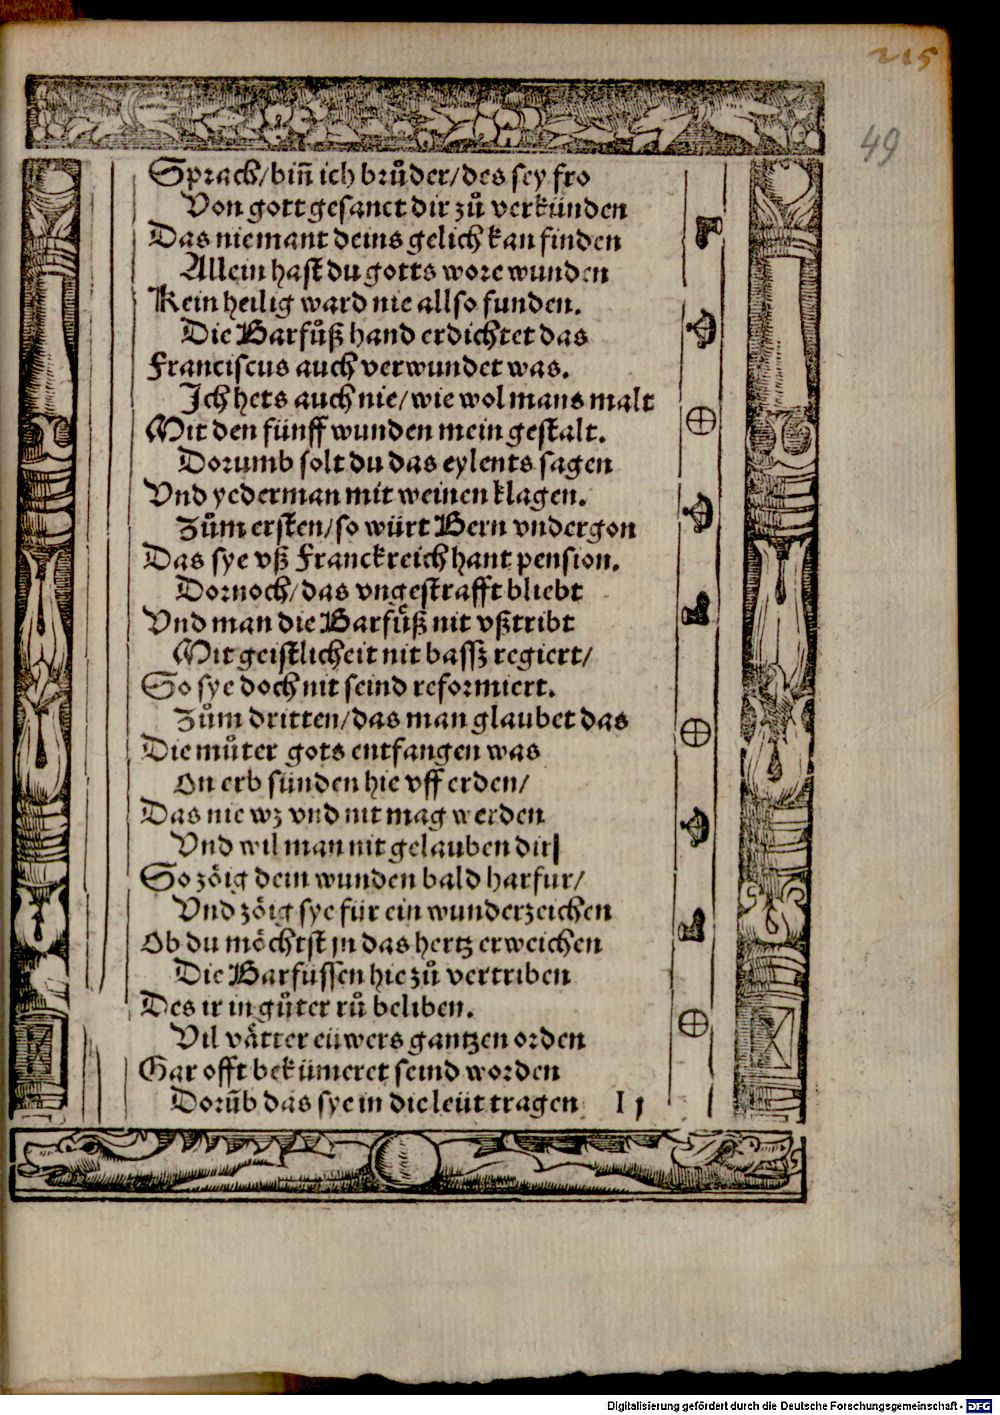 215
49
Sprach/bin̄ ich brůder/des sey fro
Von gott gesanct dir zů verkünden
Das niemant deins gelich kan finden
Allein hast du gotts wore wunden
Kein heilig ward nie allso funden.
Die Barfůß hand erdichtet das
Franciscus auch verwundet was.
Ich hets auch nie/wie wol mans malt
Mit den fünff wunden mein gestalt.
Dorumb solt du das eylents sagen
Vnd yederman mit weinen klagen.
Zům ersten/so würt Bern vndergon
Das sye vß Franckreich hant pension.
Dornoch/das vngestrafft bliebt
Vnd man die Barfůß nit vßtribt
Mit geistlicheit nit bassz regiert/
So sye doch nit seind reformiert.
Zům dritten/das man glaubet das
Die můter gots entfangen was
On erb sünden hie vff erden/
Das nie wz vnd nit mag werden
Vnd wil man nit gelauben dir
So zöig dein wunden bald harfur/
Vnd zöig sye für ein wunderzeichen
Ob du möchtst jn das hertz erweichen
Die Barfussen hie zů vertriben
Des ir in gůter rů beliben.
Vil vätter eüwers gantzen orden
Gar offt bekümeret seind worden
Dorūb das sye in die leüt tragen I ij
Digitalisierung gefördert durch die Deutsche Forschungsgemeinschaft - DFG